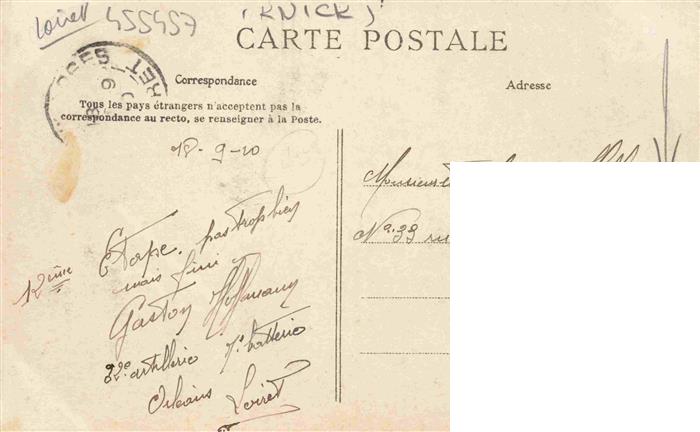 Loiret 455457 (KNICK)
CARTE POSTALE
Correspondance
Adresse
Tous les pays étrangers n'acceptent pas la
correspondance au recto, se renseigner à la Poste.
18-9-10
12ème Etape. pas trop bien
mais fini
Gaston Hoffmann
32e artillerie 7e batterie
Orléans Loiret
Monsieur
No. 33 ru